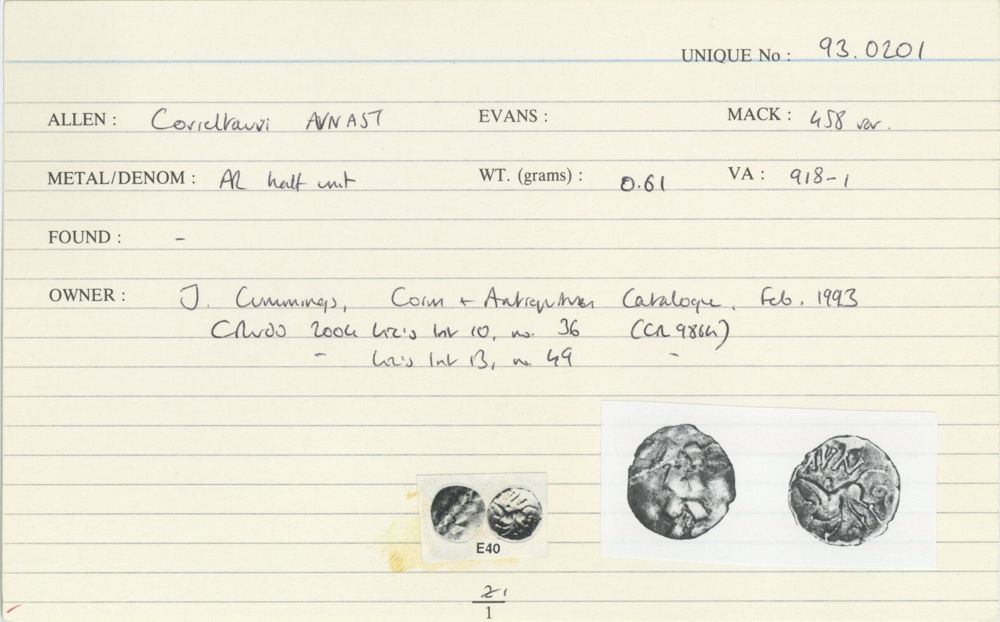 UNIQUE No : 93.0201
ALLEN : Corieltauvi AVNAST EVANS : MACK : 458 var.
METAL/DENOM : AR half unit WT. (grams) : 0.61 VA : 918-1
FOUND : -
OWNER : J. Cummings, Coin + Antiquities Catalogue, Feb. 1993
2004 10, no. 36 (CR 986H)
- 13, no 49 -
E40
1